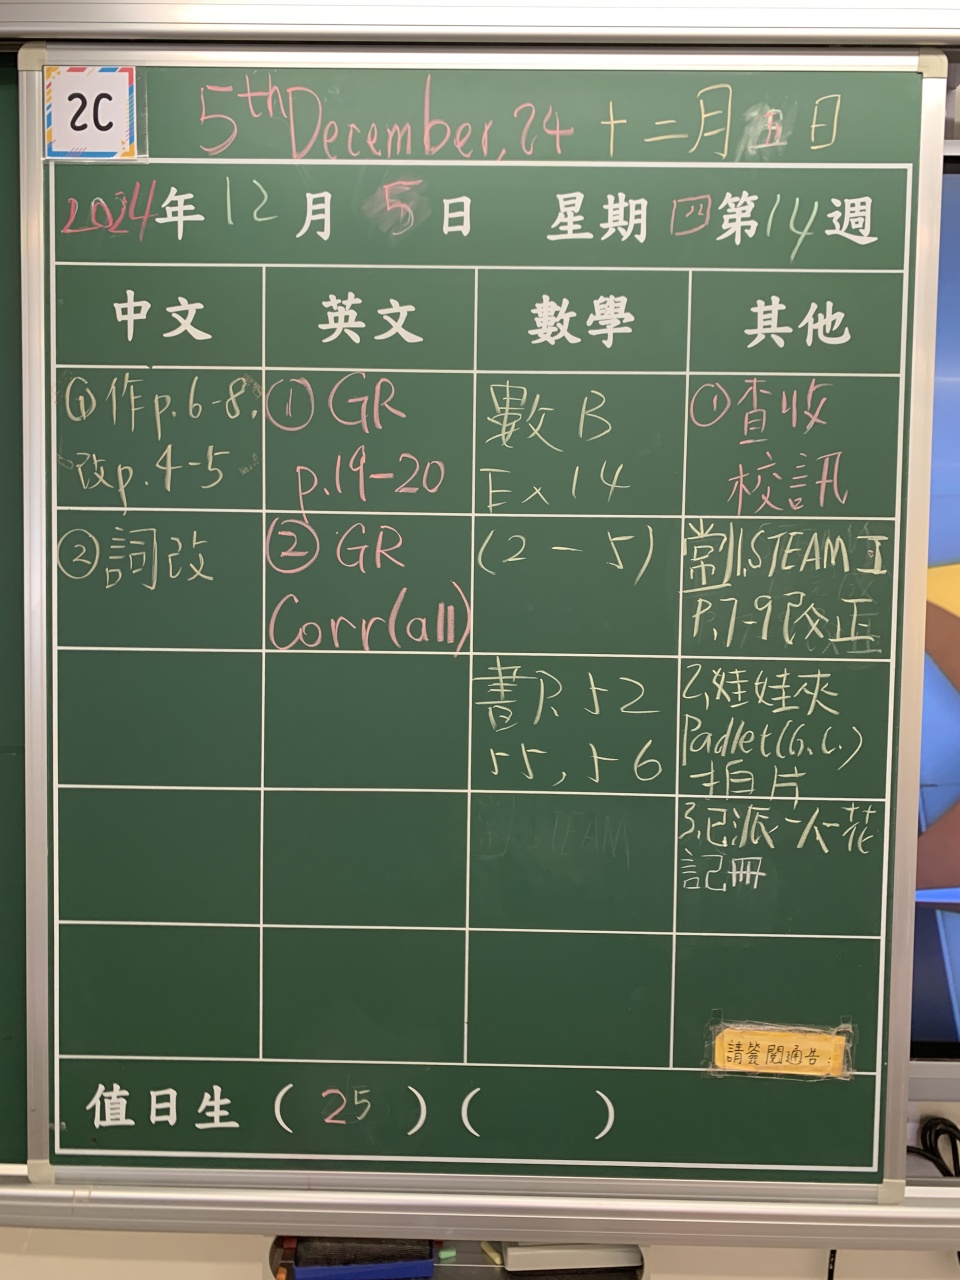 2C
5th December, 24 十二月五日
2024年12月5日 星期四第14週
中文 英文 數學 其他
①作p.6-8.
改p.4-5
②詞改
①GR
p.19-20
②GR
Corr(all)
數B
Ex 14
(2-5)
書P.52
55,56
①查收
校訊
常1.STEAM工
P.7-9改正
2.娃娃夾
Padlet(G.C.)
拍片
3.已派一人一花
記冊
請簽閱通告:
值日生(25)( )